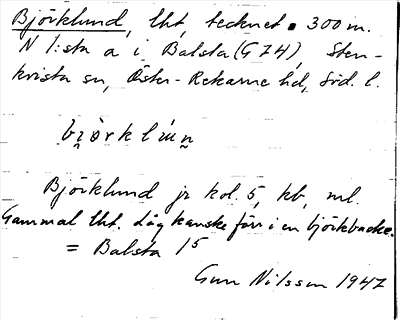 Björklund, lht, tecknet ▪ 300 m.
N 1:sta a i Balsta (G 74), Sten-
kvista sn, Öster-Rekarne hd, Söd. l.
Björklund jr kol. 5, kb, ml.
Gammal lht. Låg kanske förr i en björkbacke.
= Balsta 1⁵
Gun Nilsson 1947